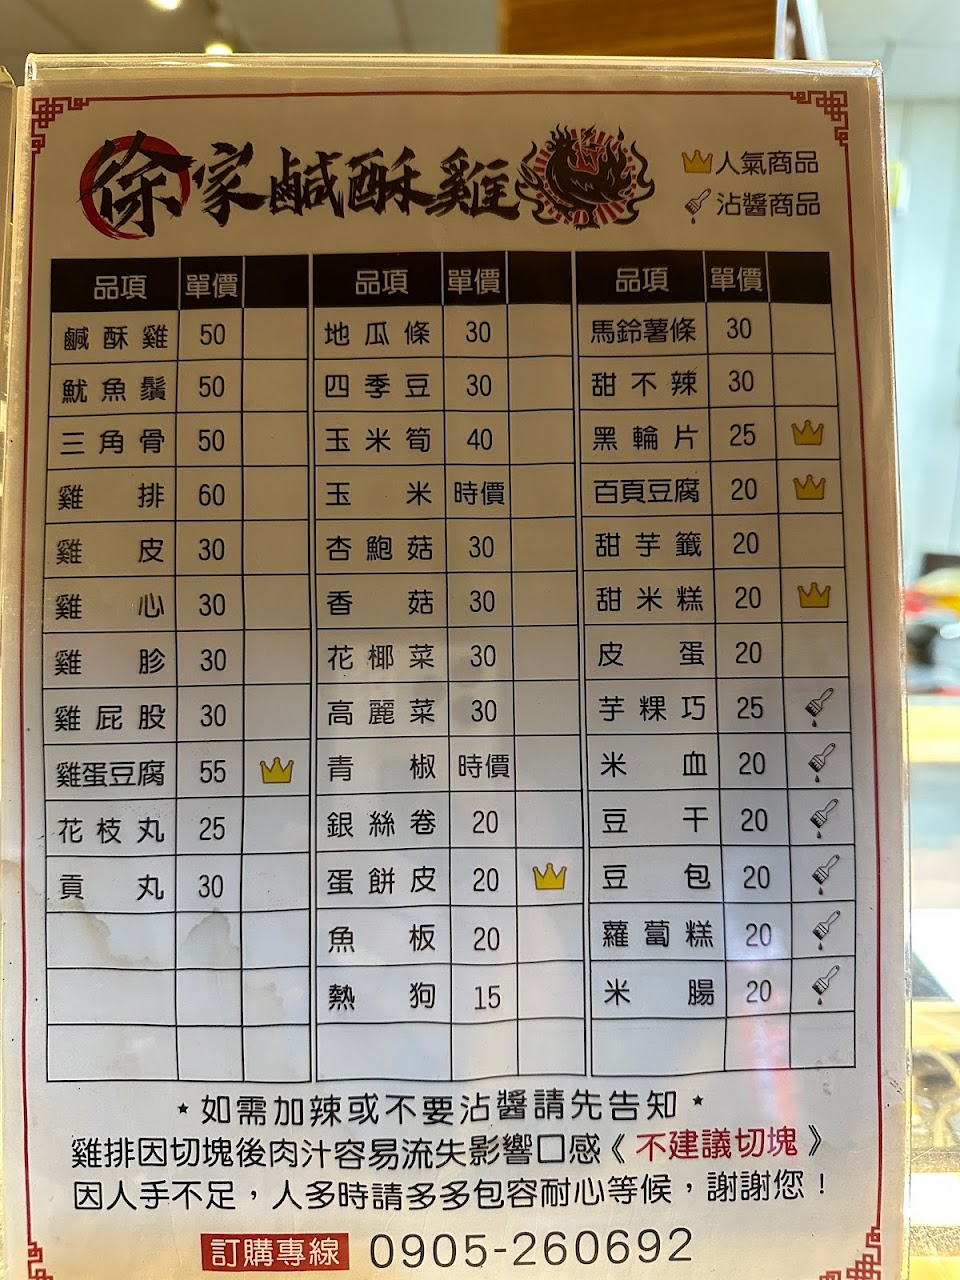 徐家鹹酥雞
人氣商品
沾醬商品
品項 單價 品項 單價 品項 單價
鹹酥雞 50 地瓜條 30 馬鈴薯條 30
魷魚鬚 50 四季豆 30 甜不辣 30
三角骨 50 玉米筍 40 黑輪片 25
雞排 60 玉米 時價 百頁豆腐 20
雞皮 30 杏鮑菇 30 甜芋籤 20
雞心 30 香菇 30 甜米糕 20
雞胗 30 花椰菜 30 皮蛋 20
雞屁股 30 高麗菜 30 芋粿巧 25
雞蛋豆腐 55 青椒 時價 米血 20
花枝丸 25 銀絲卷 20 豆干 20
貢丸 30 蛋餅皮 20 豆包 20
魚板 20 蘿蔔糕 20
熱狗 15 米腸 20
*如需加辣或不要沾醬請先告知*
雞排因切塊後肉汁容易流失影響口感《不建議切塊》
因人手不足，人多時請多多包容耐心等候，謝謝您！
訂購專線 0905-260692